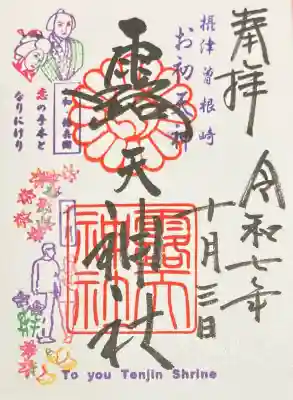 奉拝
令和七年
十月三日
摂津曽根崎
お初天神
露天神社
恋の手本と
なりにけり
露天
神社
To you Tenjin Shrine